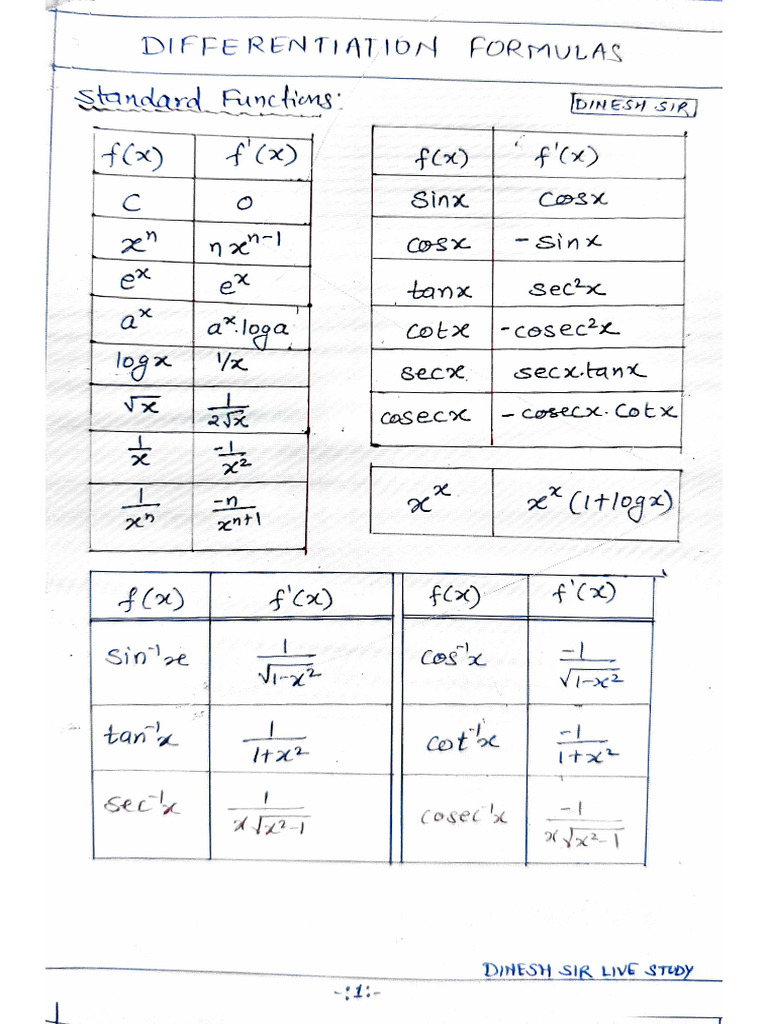 DIFFERENTIATION FORMULAS
Standard Functions:
DINESH SIR
f(x) f'(x)
C 0
xⁿ nxⁿ⁻¹
eˣ eˣ
aˣ aˣ.loga
logx 1/x
√x 1/2√x
1/x -1/x²
1/xⁿ -n/xⁿ⁺¹
f(x) f'(x)
sinx cosx
cosx -sinx
tanx sec²x
cotx -cosec²x
secx secx.tanx
cosecx -cosecx.cotx
xˣ xˣ(1+logx)
f(x) f'(x) f(x) f'(x)
sin⁻¹x 1/√1-x² cos⁻¹x -1/√1-x²
tan⁻¹x 1/1+x² cot⁻¹x -1/1+x²
sec⁻¹x 1/x√x²-1 cosec⁻¹x -1/x√x²-1
DINESH SIR LIVE STUDY
-:1:-